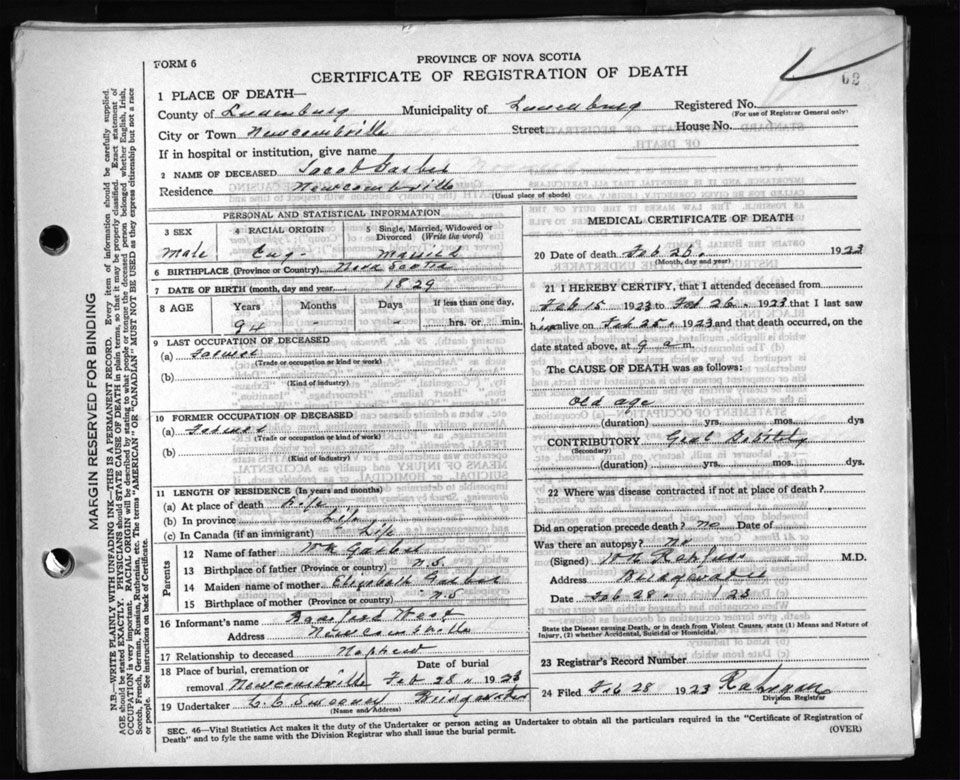 FORM 6
PROVINCE OF NOVA SCOTIA
CERTIFICATE OF REGISTRATION OF DEATH
62
1 PLACE OF DEATH—
County of Lunenburg Municipality of Lunenburg Registered No.
(For use of Registrar General only)
City or Town Newcombville Street House No.
If in hospital or institution, give name
2 NAME OF DECEASED Jacob Garber
Residence Newcombville
(Usual place of abode)
PERSONAL AND STATISTICAL INFORMATION
3 SEX 4 RACIAL ORIGIN 5 Single, Married, Widowed or Divorced (Write the word)
Male Eng- Married
6 BIRTHPLACE (Province or Country) Nova Scotia
7 DATE OF BIRTH (month, day and year 1829
8 AGE Years Months Days If less than one day,
94 - - hrs. or min.
9 LAST OCCUPATION OF DECEASED
(a) Farmer
(Trade or occupation or kind or work)
(b)
(Kind of industry)
10 FORMER OCCUPATION OF DECEASED
(a) Farmer
(Trade or occupation or kind of work)
(b)
(Kind of Industry)
11 LENGTH OF RESIDENCE (In years and months)
(a) At place of death Life
(b) In province Life
(c) In Canada (if an immigrant) Life
Parents
12 Name of father Wm Garber
13 Birthplace of father (Province or country) N.S.
14 Maiden name of mother Elizabeth
15 Birthplace of mother (Province or country) N.S
16 Informant's name West
Address Newcombville
17 Relationship to deceased Nephew
18 Place of burial, cremation or Date of burial
removal Newcombville Feb 28 1923
19 Undertaker Bridgewater
(Name and Address)
MEDICAL CERTIFICATE OF DEATH
20 Date of death Feb 26. 1923
(Month, day and year)
21 I HEREBY CERTIFY, that I attended deceased from
Feb 15 1923 to Feb 26. 1923 that I last saw
him alive on Feb 25. 1923 and that death occurred, on the
date stated above, at 9 a m.
The CAUSE OF DEATH was as follows:
old age
(duration) yrs. mos. dys
CONTRIBUTORY Genl Debility
(Secondary)
(duration) yrs. mos. dys.
22 Where was disease contracted if not at place of death?
Did an operation precede death? no Date of
Was there an autopsy? no
(Signed) M.D.
Address Bridgewater
Date Feb 28. 1923
State the Disease causing Death, or in death from Violent Causes, state (1) Means and Nature of Injury, (2) whether Accidental, Suicidal or Homicidal.
23 Registrar's Record Number
24 Filed Feb 28 1923
Division Registrar
SEC. 46—Vital Statistics Act makes it the duty of the Undertaker or person acting as Undertaker to obtain all the particulars required in the "Certificate of Registration of
Death" and to fyle the same with the Division Registrar who shall issue the burial permit.
(OVER)
MARGIN RESERVED FOR BINDING
N.B.—WRITE PLAINLY WITH UNFADING INK—THIS IS A PERMANENT RECORD. Every item of information should be carefully supplied.
AGE should be stated EXACTLY. PHYSICIANS should STATE CAUSE OF DEATH in plain terms, so that it may be properly classified. Exact statement of
OCCUPATION is very important. RACIAL ORIGIN will be described by stating to what people or tongue the deceased person belonged whether English, Irish,
Scotch, French, German, Russian, Ruthenian, etc. The terms "AMERICAN" OR "CANADIAN" MUST NOT BE USED as they express citizenship but not a race
or people. See instructions on back of Certificate.